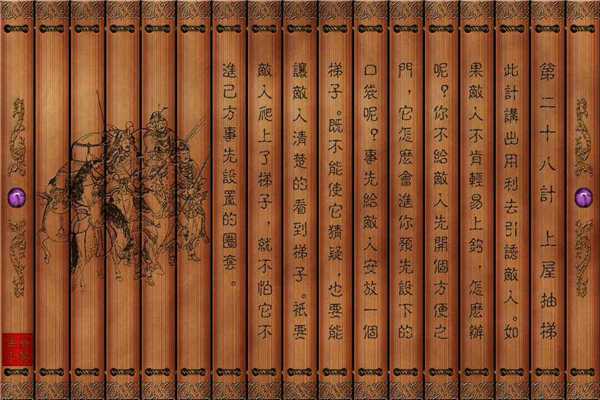 第二十八計　上屋抽梯
此計講出用利去引誘敵人。如
果敵人不肯輕易上鈎，怎麽辦
呢？你不給敵人先開個方便之
門，它怎麽會進你預先設下的
口袋呢？事先給敵人安放一個
梯子。既不能使它猜疑，也要能
讓敵人清楚的看到梯子。衹要
敵人爬上了梯子，就不怕它不
進己方事先設置的圈套。